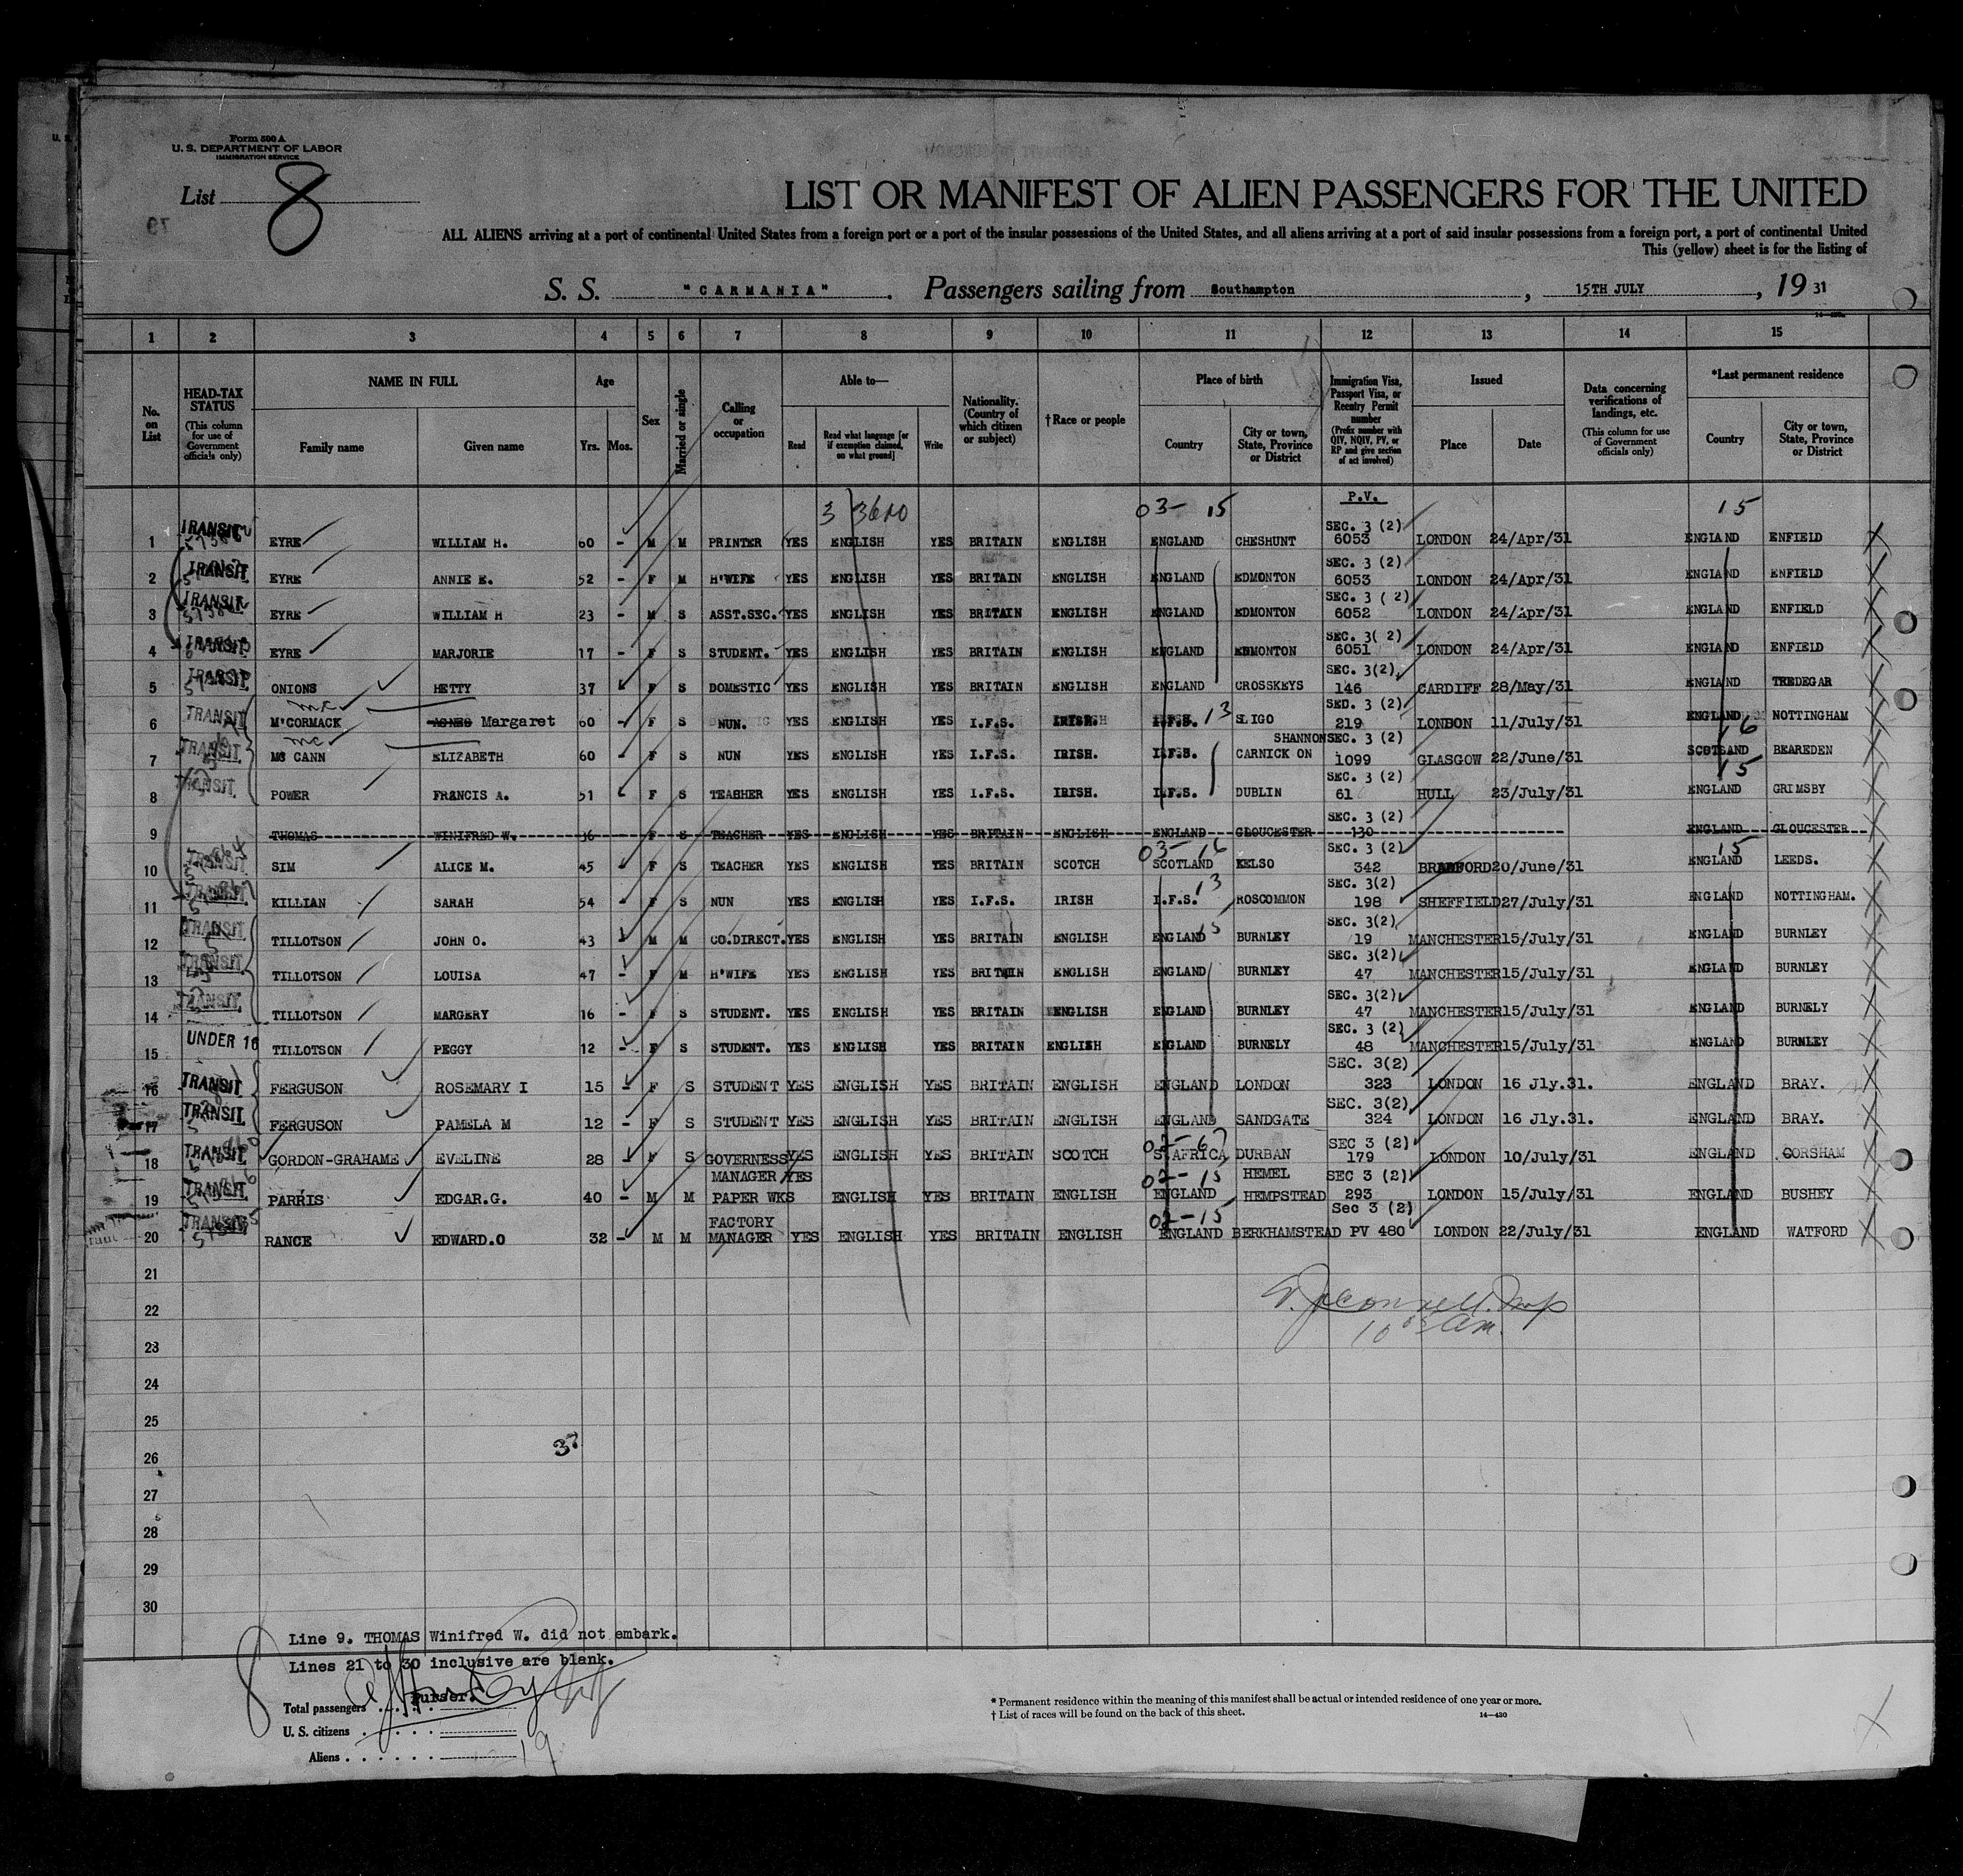 Form 500 A
U. S. DEPARTMENT OF LABOR
IMMIGRATION SERVICE
List 8
LIST OR MANIFEST OF ALIEN PASSENGERS FOR THE UNITED
ALL ALIENS arriving at a port of continental United States from a foreign port or a port of the insular possessions of the United States, and all aliens arriving at a port of said insular possessions from a foreign port, a port of continental United
This (yellow) sheet is for the listing of
S. S. "CARMANIA". Passengers sailing from Southampton, 15TH JULY, 19 31
1 2 3 4 5 6 7 8 9 10 11 12 13 14 15
No. on List
HEAD-TAX STATUS (This column for use of Government officials only)
NAME IN FULL Family name Given name
Age Yrs. Mos.
Sex
Married or single
Calling or occupation
Able to— Read Read what language [or if exemption claimed, on what ground] Write
Nationality. (Country of which citizen or subject)
†Race or people
Place of birth Country City or town, State, Province or District
Immigration Visa, Passport Visa, or Reentry Permit number (Prefix number with QIV, NQIV, PV, or RP and give section of act involved)
Issued Place Date
Data concerning verifications of landings, etc. (This column for use of Government officials only)
*Last permanent residence Country City or town, State, Province or District
3 3620 03- 15 P.V. 15
1 TRANSIT EYRE WILLIAM H. 60 - M M PRINTER YES ENGLISH YES BRITAIN ENGLISH ENGLAND CHESHUNT SEC. 3 (2) 6053 LONDON 24/Apr/31 ENGLAND ENFIELD
2 TRANSIT EYRE ANNIE E. 52 - F M H'WIFE YES ENGLISH YES BRITAIN ENGLISH ENGLAND EDMONTON SEC. 3 (2) 6053 LONDON 24/Apr/31 ENGLAND ENFIELD
3 TRANSIT EYRE WILLIAM H 23 - M S ASST.SEC. YES ENGLISH YES BRITAIN ENGLISH ENGLAND EDMONTON SEC. 3 ( 2) 6052 LONDON 24/Apr/31 ENGLAND ENFIELD
4 TRANSIT EYRE MARJORIE 17 - F S STUDENT. YES ENGLISH YES BRITAIN ENGLISH ENGLAND EDMONTON SEC. 3( 2) 6051 LONDON 24/Apr/31 ENGLAND ENFIELD
5 TRANSIT ONIONS HETTY 37 - F S DOMESTIC YES ENGLISH YES BRITAIN ENGLISH ENGLAND CROSSKEYS SEC. 3(2) 146 CARDIFF 28/May/31 ENGLAND TREDEGAR
6 TRANSIT mc M'CORMACK AGNES Margaret 60 - F S NUN. YES ENGLISH YES I.F.S. IRISH I.F.S. 13 SLIGO SED. 3 (2) 219 LONDON 11/July/31 ENGLAND NOTTINGHAM
7 TRANSIT mc MC CANN ELIZABETH 60 - F S NUN YES ENGLISH YES I.F.S. IRISH. I.F.S. CARNICK ON SHANNON SEC. 3 (2) 1099 GLASGOW 22/June/31 16 SCOTLAND BEAREDEN
8 TRANSIT POWER FRANCIS A. 51 - F S TEACHER YES ENGLISH YES I.F.S. IRISH. I.F.S. DUBLIN SEC. 3 (2) 61 HULL 23/July/31 15 ENGLAND GRIMSBY
9 THOMAS WINIFRED W. 36 F S TEACHER YES ENGLISH YES BRITAIN ENGLISH ENGLAND GLOUCESTER SEC. 3 (2) 130 ENGLAND GLOUCESTER
10 TRANSIT SIM ALICE M. 45 - F S TEACHER YES ENGLISH YES BRITAIN SCOTCH 03- 16 SCOTLAND KELSO SEC. 3 (2) 342 BRADFORD 20/June/31 15 ENGLAND LEEDS.
11 TRANSIT KILLIAN SARAH 54 - F S NUN YES ENGLISH YES I.F.S. IRISH I.F.S. 13 ROSCOMMON SEC. 3(2) 198 SHEFFIELD 27/July/31 ENGLAND NOTTINGHAM.
12 TRANSIT TILLOTSON JOHN O. 43 - M M CO.DIRECT. YES ENGLISH YES BRITAIN ENGLISH ENGLAND 15 BURNLEY SEC. 3(2) 19 MANCHESTER 15/July/31 ENGLAND BURNLEY
13 TRANSIT TILLOTSON LOUISA 47 - F M H'WIFE YES ENGLISH YES BRITAIN ENGLISH ENGLAND BURNLEY SEC. 3(2) 47 MANCHESTER 15/July/31 ENGLAND BURNLEY
14 TRANSIT TILLOTSON MARGERY 16 - F S STUDENT. YES ENGLISH YES BRITAIN ENGLISH ENGLAND BURNLEY SEC. 3(2) 47 MANCHESTER 15/July/31 ENGLAND BURNELY
15 UNDER 16 TILLOTSON PEGGY 12 - F S STUDENT. YES ENGLISH YES BRITAIN ENGLISH ENGLAND BURNELY SEC. 3 (2) 48 MANCHESTER 15/July/31 ENGLAND BURNLEY
16 TRANSIT FERGUSON ROSEMARY I 15 - F S STUDENT YES ENGLISH YES BRITAIN ENGLISH ENGLAND LONDON SEC. 3(2) 323 LONDON 16 Jly.31. ENGLAND BRAY.
17 TRANSIT FERGUSON PAMELA M 12 - F S STUDENT YES ENGLISH YES BRITAIN ENGLISH ENGLAND SANDGATE SEC. 3(2) 324 LONDON 16 Jly.31. ENGLAND BRAY.
18 TRANSIT GORDON-GRAHAME EVELINE 28 - F S GOVERNESS YES ENGLISH YES BRITAIN SCOTCH 02-67 S.AFRICA DURBAN SEC 3 (2) 179 LONDON 10/July/31 ENGLAND CORSHAM
19 TRANSIT PARRIS EDGAR.G. 40 - M M MANAGER PAPER WKS YES ENGLISH YES BRITAIN ENGLISH 02-15 ENGLAND HEMEL HEMPSTEAD SEC 3 (2) 293 LONDON 15/July/31 ENGLAND BUSHEY
20 TRANSIT RANCE EDWARD.O 32 - M M FACTORY MANAGER YES ENGLISH YES BRITAIN ENGLISH 02-15 ENGLAND BERKHAMSTEAD Sec 3 (2) PV 480 LONDON 22/July/31 ENGLAND WATFORD
21
22
23
24
25
26
27
28
29
30
37
Line 9. THOMAS Winifred W. did not embark.
Lines 21 to 30 inclusive are blank.
Purser.
Total passengers
U. S. citizens
Aliens 19
* Permanent residence within the meaning of this manifest shall be actual or intended residence of one year or more.
† List of races will be found on the back of this sheet.
14—430